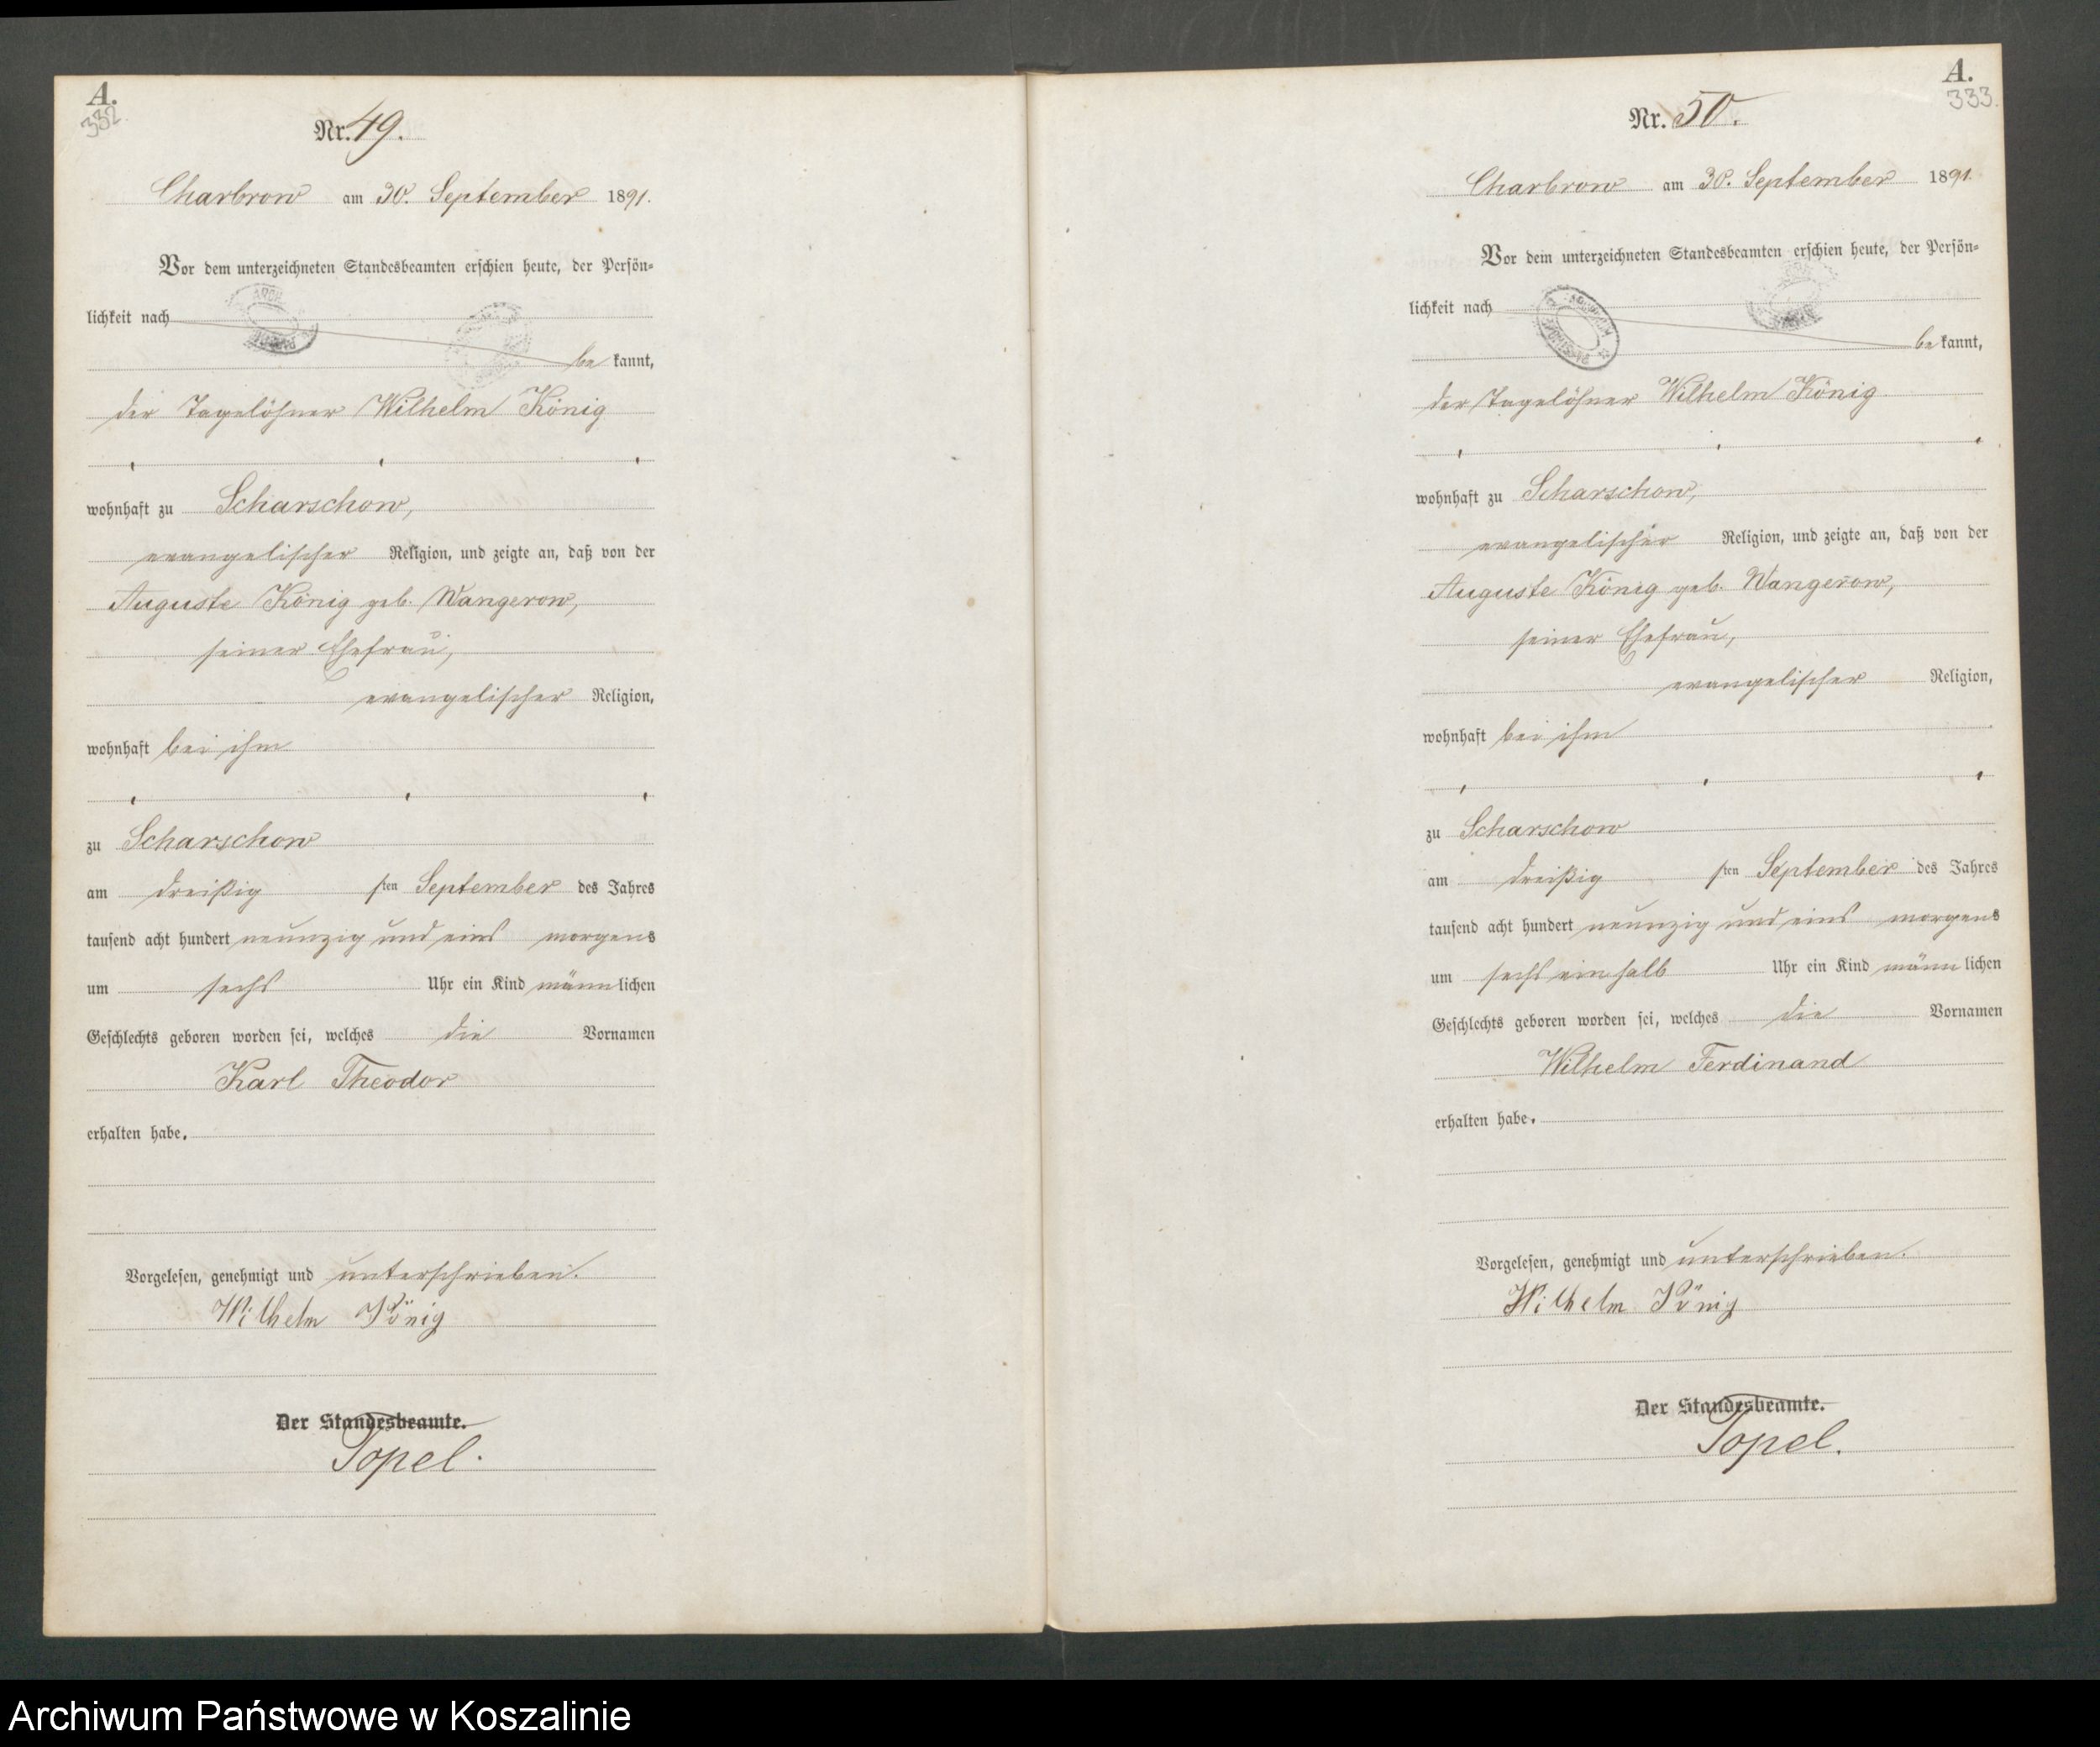 A.
332.
Nr. 49.
Charbrow am 30. September 1891.
Vor dem unterzeichneten Standesbeamten erschien heute, der Persön-
lichkeit nach
be kannt,
der Tagelöhner Wilhelm König
wohnhaft zu Scharschow,
evangelischer Religion, und zeigte an, daß von der
Auguste König geb. Wangerow,
seiner Ehefrau,
evangelischer Religion,
wohnhaft bei ihm
zu Scharschow
am dreißig sten September des Jahres
tausend acht hundert neunzig und eins morgens
um sechs Uhr ein Kind männlichen
Geschlechts geboren worden sei, welches die Vornamen
Karl Theodor
erhalten habe.
Vorgelesen, genehmigt und unterschrieben.
Wilhelm König
Der Standesbeamte.
Topel.
A.
333.
Nr. 50.
Charbrow am 30. September 1891.
Vor dem unterzeichneten Standesbeamten erschien heute, der Persön-
lichkeit nach
be kannt,
der Tagelöhner Wilhelm König
wohnhaft zu Scharschow,
evangelischer Religion, und zeigte an, daß von der
Auguste König geb. Wangerow,
seiner Ehefrau,
evangelischer Religion,
wohnhaft bei ihm
zu Scharschow
am dreißig sten September des Jahres
tausend acht hundert neunzig und eins morgens
um sechs ein halb Uhr ein Kind männlichen
Geschlechts geboren worden sei, welches die Vornamen
Wilhelm Ferdinand
erhalten habe.
Vorgelesen, genehmigt und unterschrieben.
Wilhelm König
Der Standesbeamte.
Topel.
Archiwum Państwowe w Koszalinie